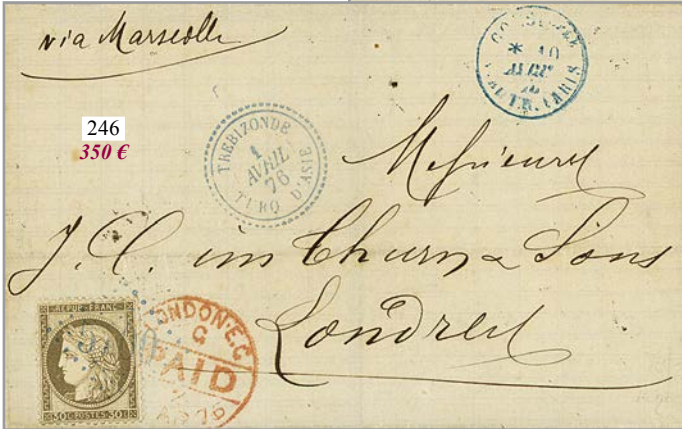 via Marseille
246
350 €
TREBIZONDE
1
AVRIL
76
TURQ. D'ASIE
10
PARIS
Messieurs
J. C. im Thurn & Sons
Londres
REPUB FRANC
30 C POSTES 30
LONDON·E.C
G
PAID
76